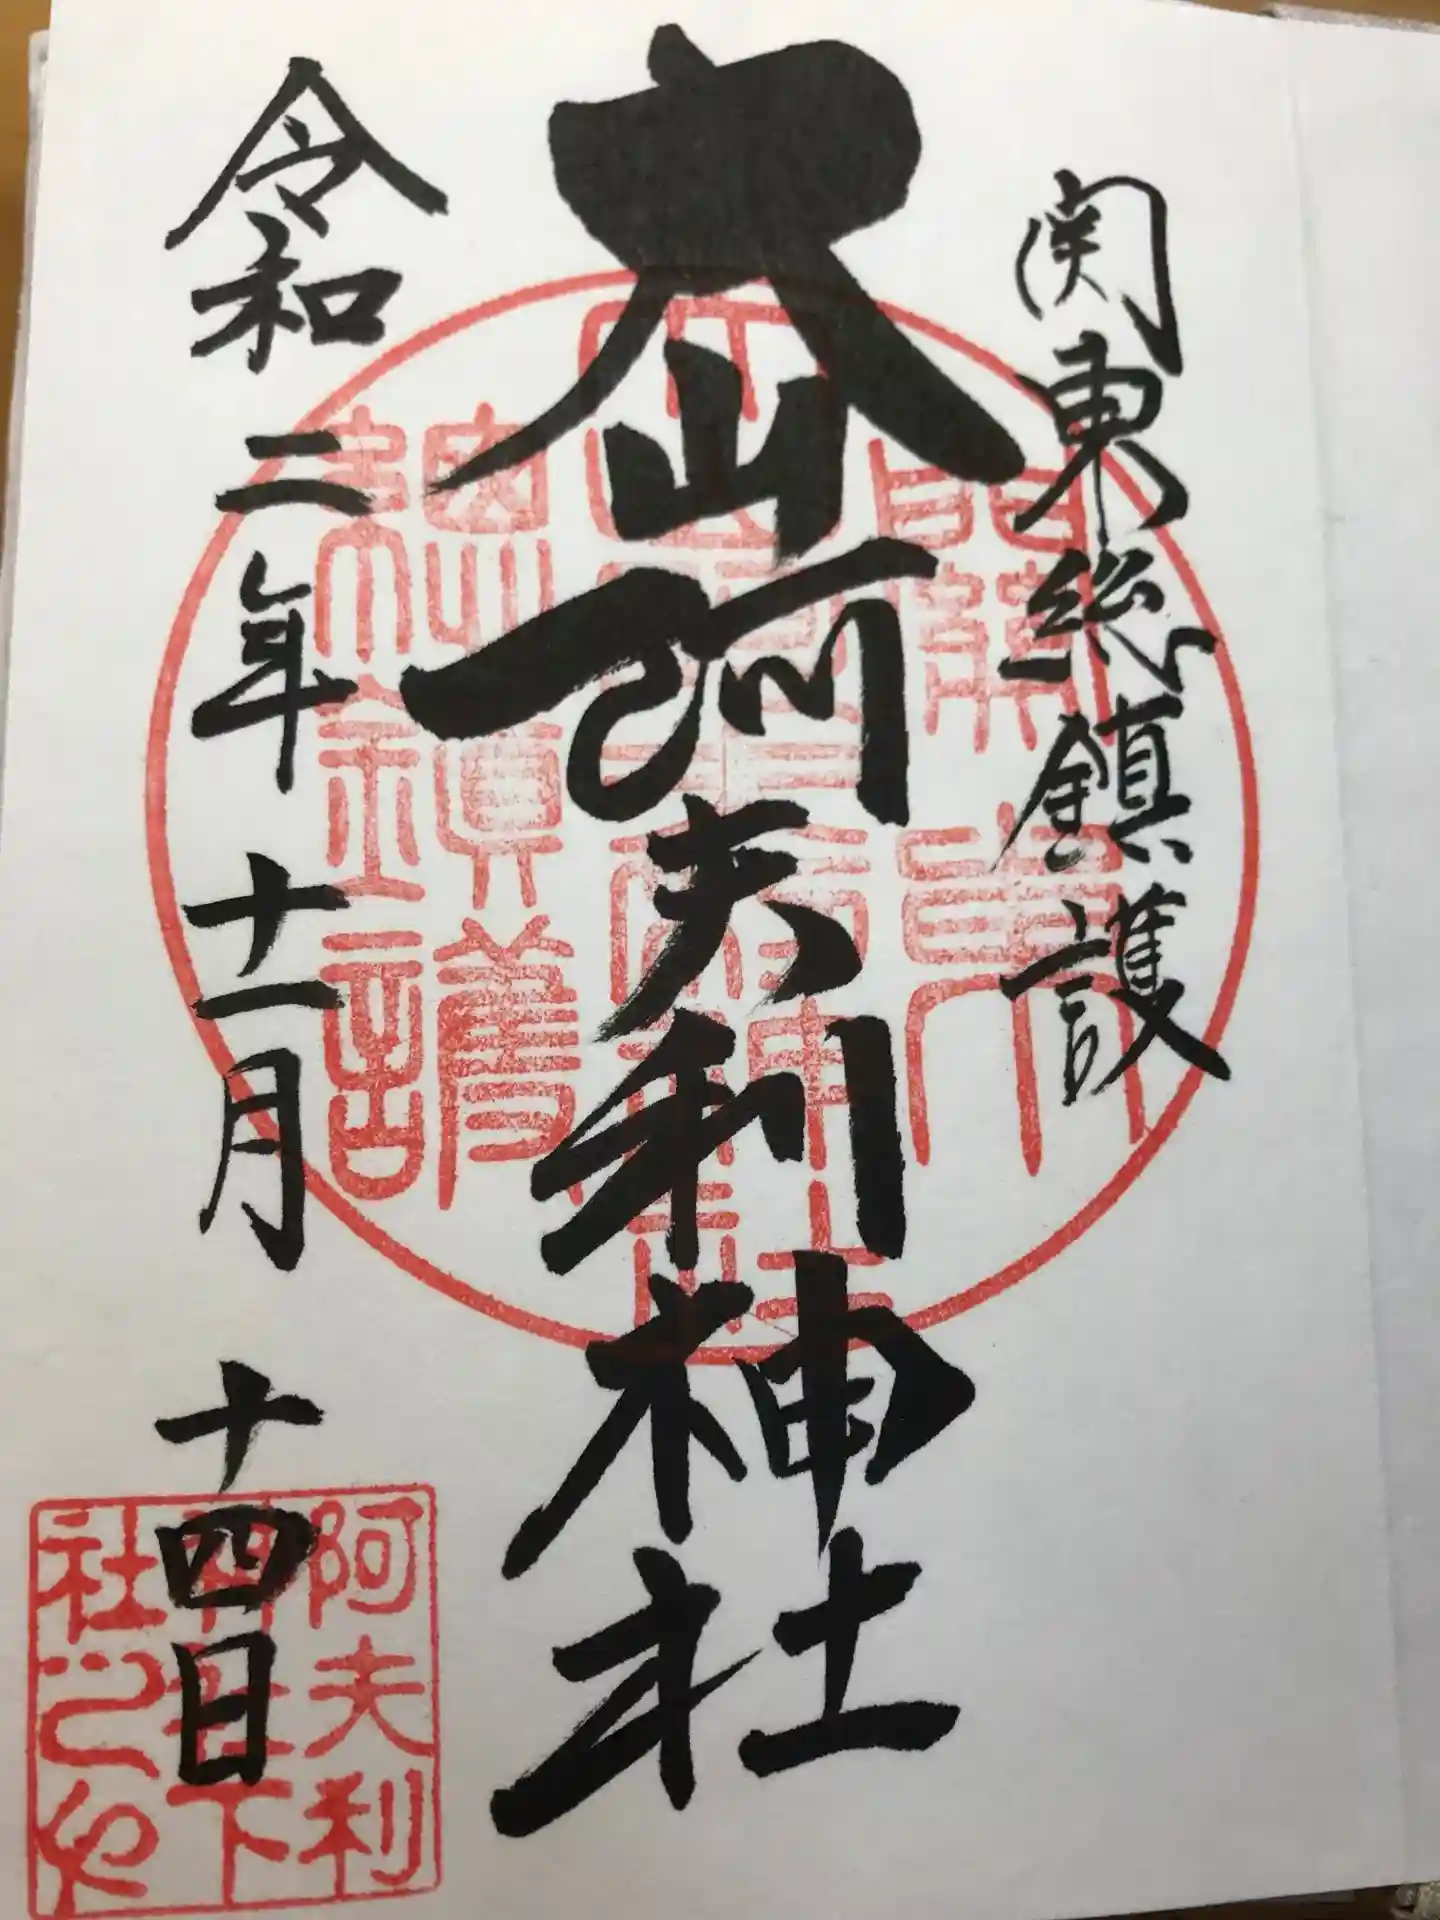 関東総鎮護
大山阿夫利神社
令和二年十一月十四日
關東總鎮護
阿夫利
神社下
社之印